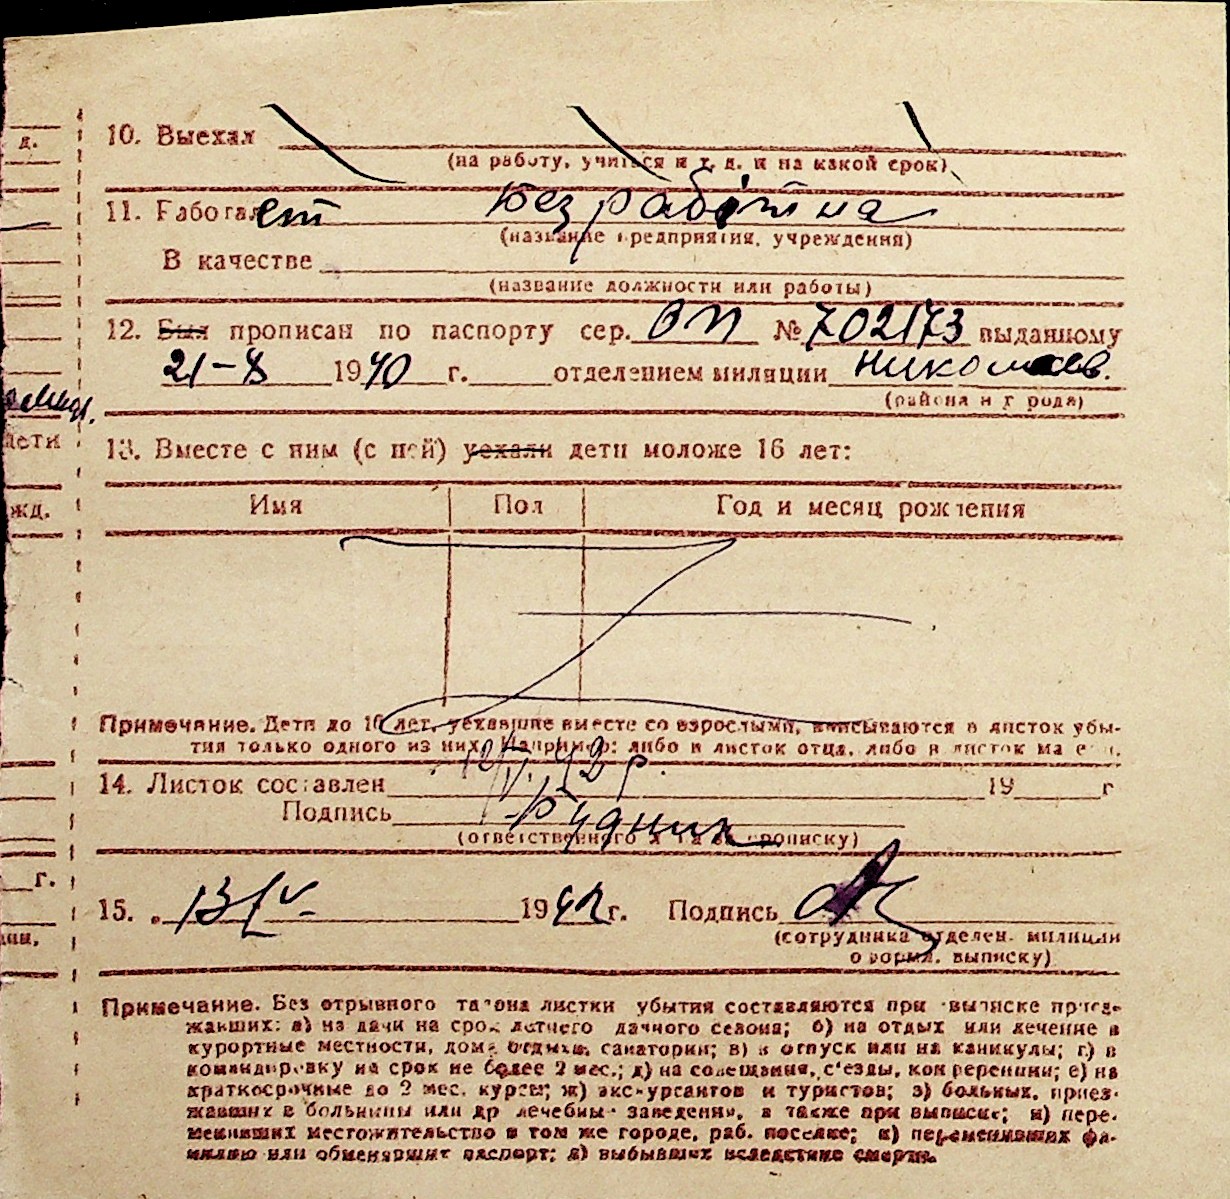 10. Выехал
(на работу, учиться и т. д. и на какой срок)
11. Работает Безработная
(название предприятия, учреждения)
В качестве
(название должности или работы)
12. Был прописан по паспорту сер. ОП № 702173 выданному
21-8 1940 г. отделением милиции Николаев.
(района и города)
13. Вместе с ним (с ней) уехали дети моложе 16 лет:
дети
Имя Пол Год и месяц рождения
жд.
Примечание. Дети до 16 лет, уехавшие вместе со взрослыми, вписываются в листок убы-
тия только одного из них. Например: либо в листок отца, либо в листок матери.
14. Листок составлен 12/V. 42 р. 19 г
Подпись Рудник
(ответственного за прописку)
г.
15. 13/V 1942 г. Подпись
(сотрудника отделен. милиции
оформл. выписку)
Примечание. Без отрывного талона листки убытия составляются при выписке приез-
жавших: а) на дачи на срок летнего дачного сезона; б) на отдых или лечение в
курортные местности, дома отдыха, санатории; в) в отпуск или на каникулы; г) в
командировку на срок не более 2 мес.; д) на совещания, с'езды, конференции; е) на
краткосрочные до 2 мес. курсы; ж) экскурсантов и туристов; з) больных, приез-
жавших в больницы или др лечебные заведения, а также при выписке; и) пере-
менивших местожительство в том же городе, раб. поселке; к) переменивших фа-
милию или обменявших паспорт; л) выбывших вследствие смерти.